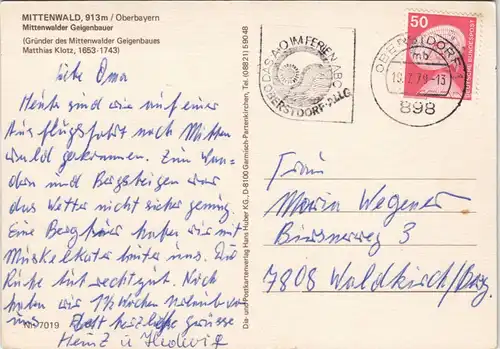 MITTENWALD, 913m / Oberbayern
Mittenwalder Geigenbauer
(Gründer des Mittenwalder Geigenbaues
Matthias Klotz, 1653-1743)
Liebe Oma
Heute sind wir auf einer
Ausflugsfahrt nach Mitten
wald gekommen. Zum Wan-
dern und Bergsteigen war
das Wetter nicht sicher genug.
Eine Bergtour haben wir mit
Muskelkater hinter uns. Die
Ruhe tut recht gut. Noch
haben wir 1½ Wochen Urlaub vor
uns. Herzliche Grüsse
Heinz u. Hedwig
Nr. 7019
Die- und Postkartenverlag Hans Huber KG., D-8100 Germisch-Partenkirchen, Tel. (08821) 59048
DAS A·O IM FERIEN-ABC
OBERSTDORF
OBERSTDORF
-13
898
50
DEUTSCHE BUNDESPOST
Frau
Maria Wegener
3
7808 Waldkirch/Brsg